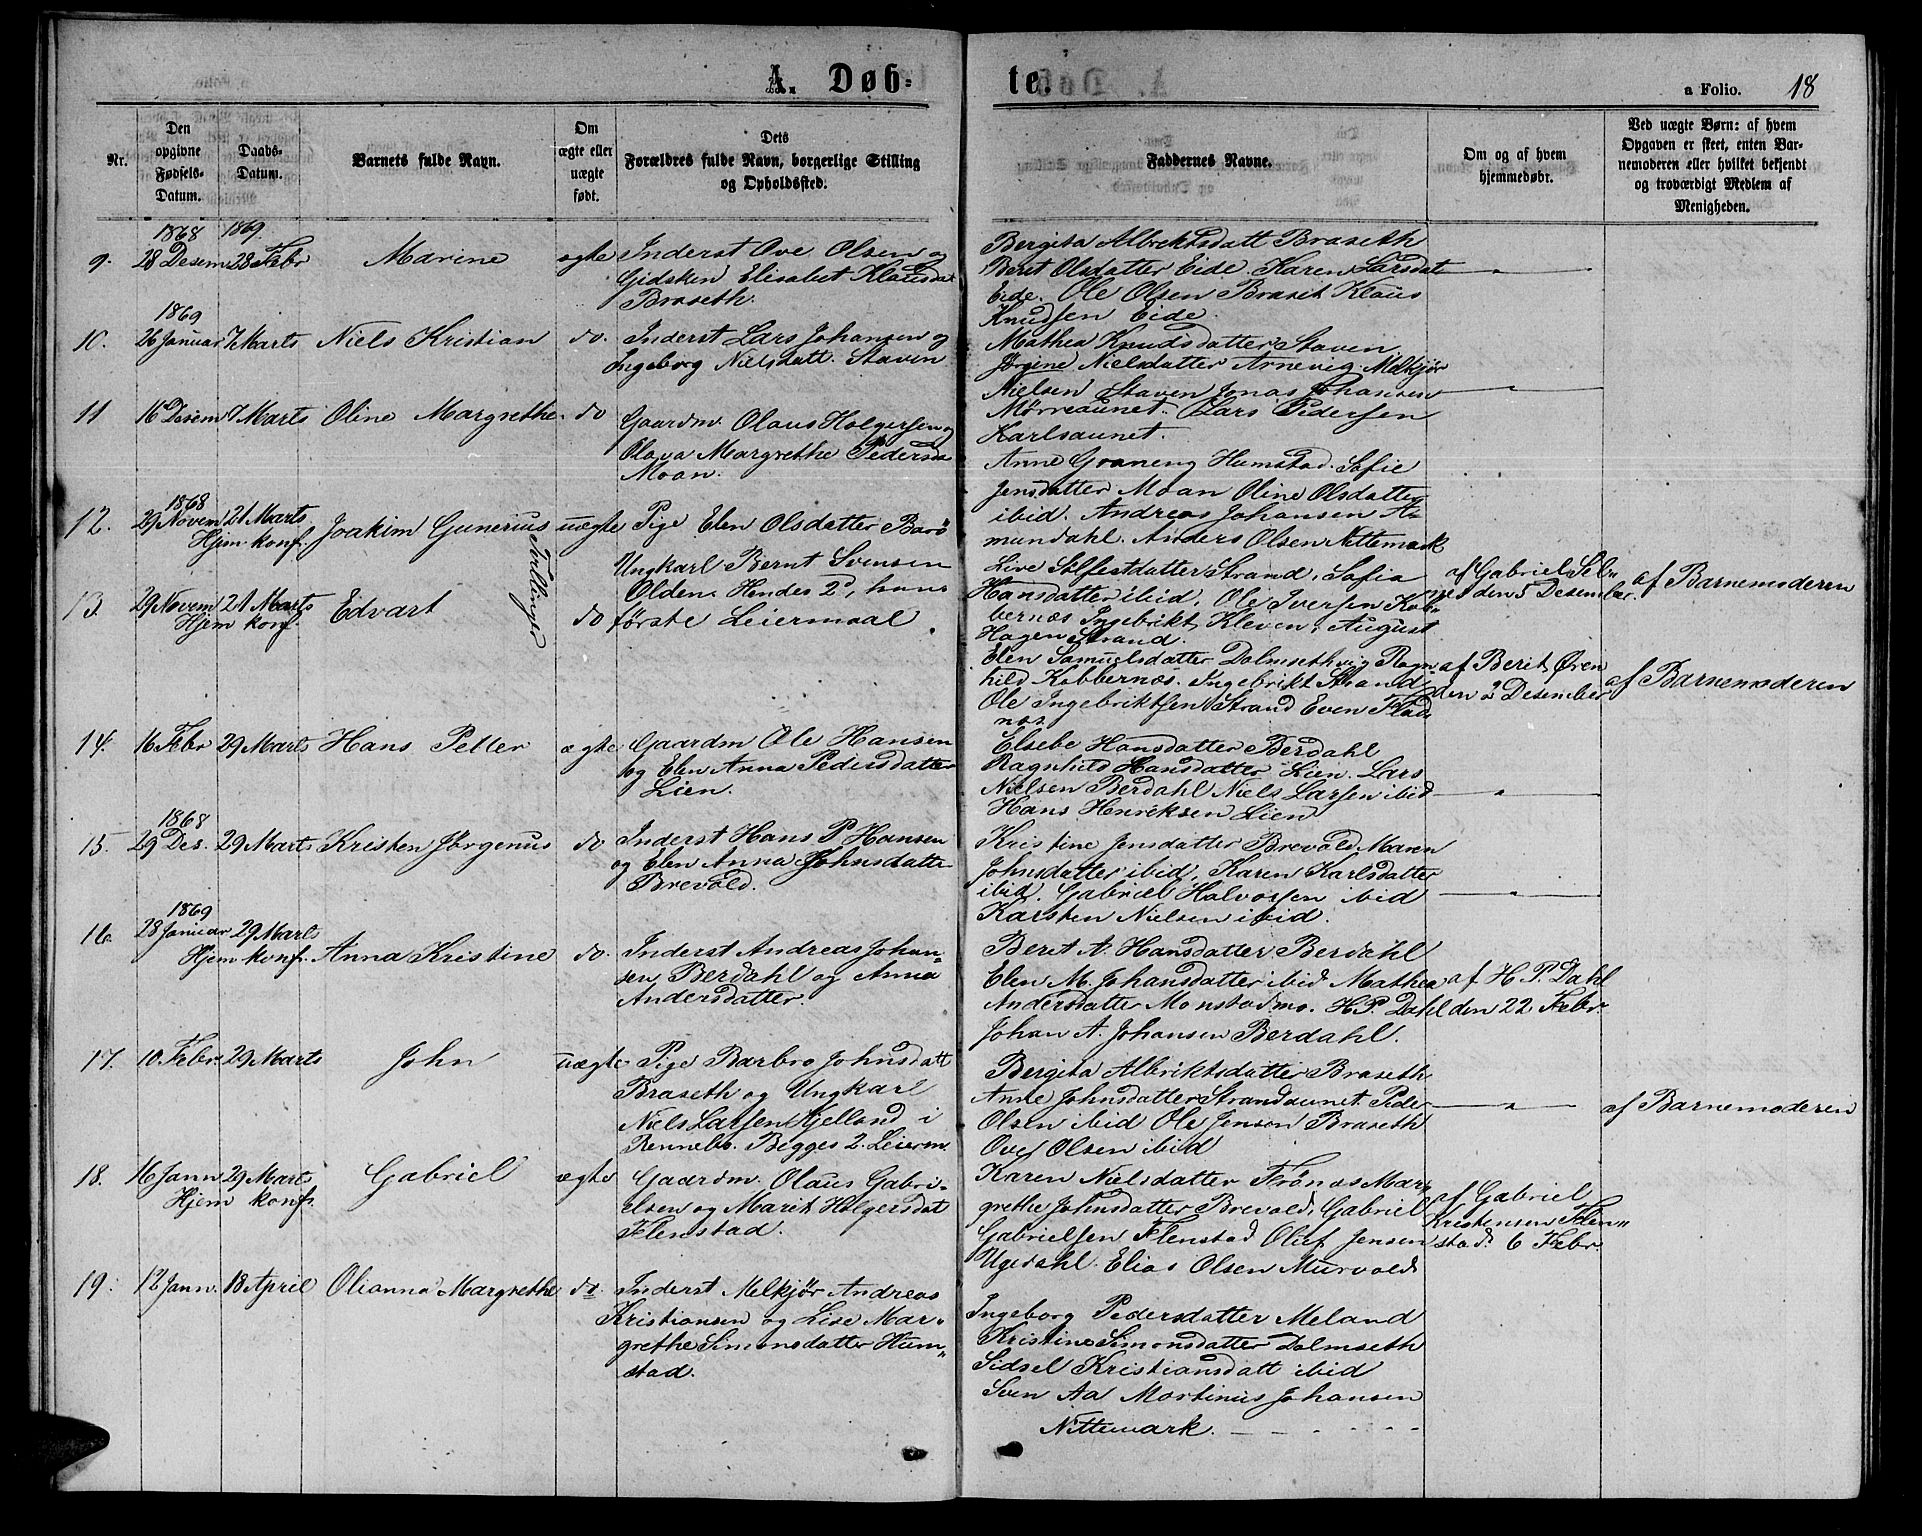 A. Døb-
te.
a Folio. 18
Nr.
Den opgivne Fødsels-Datum.
Daabs-Datum.
Barnets fulde Navn.
Om ægte eller uægte født.
Dets Forældres fulde Navn, borgerlige Stilling og Opholdssted.
Faddernes Navne.
Om og af hvem hjemmedøbt.
Ved uægte Børn: af hvem Opgaven er skeet, enten Barnemoderen eller hvilket bekjendt og troværdigt Medlem af Menigheden.
1868 1869
9. 28 Desem 28 Febr Marine ægte Inderst Ove Olsen og
Gidsken Elisabet Klausda
Braseth.
Bergita Albrektsdatt Braseth
Beret Olsdatter Eide. Karen Larsdat
Eide. Ole Olsen Braset Klaus
Knudsen Eide.
1869
10. 26 Januar 7 Marts Niels Kristian do. Inderst Lars Johansen og
Ingeborg Nielsdatt. Staven
Mathea Knudsdatter Staven
Jørgine Nielsdatter Arnevig. Melkjør
Nielsen Staven Jonas Johansen
Mørreaunet. Lars Pedersen
Karlsaunet.
11 16 Desem 7 Marts Oline Margrethe do Gaardm. Olaus Holgersen og
Olava Margrethe Pedersda
Moan.
Anne Graneng Humstad. Sofie
Jensdatter Moan Oline Olsdatter
ibid. Andreas Johansen A-
mundahl. Anders Olsen Nettemark
1868
12. 29 Novem 21 Marts Joakim Gunerius uægte Pige Elen Olsdatter Barø
Hjem konf.
Tvillinger
Ungkarl Bernt Svensen
Olden. Hendes 2d, hans
første Leiermaal.
Live Solfestdatter Strand, Sofia
Hansdatter ibid, Ole Iversen Kob-
bernæs Ingebrikt Kleven, August
Hagen Strand.
af Gabriel Sel-
nes den 5 Desember.
af Barnemoderen
13. 29 Novem 21 Marts Edvart do
Hjem konf.
Elen Samuelsdatter Dolmsethvig Ragn
hild Kobbernæs. Ingebrikt Strand
Ole Ingebriktsen Strand Even Flad
næs
af Berit Øren
den 2 Desember
af Barnemoderen
14. 16 Febr 29 Marts Hans Petter ægte Gaardm Ole Hansen
og Elen Anna Pedersdatter
Lien.
Elsebe Hansdatter Berdahl
Ragnhild Hansdatter Lien. Lars
Nielsen Berdahl Niels Larsen ibid
Hans Henriksen Lien
1868
15. 29 Des. 29 Marts Kristen Jørgenus do Inderst Hans P Hansen
og Elen Anna Johnsdatte
Brevold.
Kristine Jensdatter Brevold Maren
Johnsdatter ibid, Karen Karlsdatter
ibid. Gabriel Halvorsen ibid
Karsten Nielsen ibid.
1869
16. 28 Januar 29 Marts
Hjem konf. Anna Kristine do. Inderst Andreas Johan-
sen Berdahl og Anna
Andersdatter.
Beret A. Hansdatter Berdahl
Elen M. Johansdatter ibid Mathea
Andersdatter Monstadmo. H.P. Dahl
Johan A. Johansen Berdahl.
af H. P. Dahl
den 22 Febr.
17. 10. Febr. 29 Marts John uægte Pige Barbro Johnsdatt
Braseth og Ungkarl
Niels Larsen Hjelland i
Rennebo. Begges 2. Leierm
Bergita Albriktsdatter Braseth
Anne Johnsdatter Strandaunet Peder
Olsen ibid Ole Jenson Braseth
Ove Olsen ibid
af Barnemoderen
18. 16 Jann 29 Marts Gabriel ægte Gaardm. Olaus Gabri-
Hjem konf.
elsen og Marit Holgersdat
Flenstad.
Karen Nielsdatter Frönæs Mar
grethe Johnsdatter Brevold, Gabriel
Gabrielsen Flenstad Oluf Jensen
Ugedahl. Elias Olsen Murvold
af Gabriel
Kristensen Flen-
stad. 6 Febr.
19. 12 Jann. 18 April Olianna Margrethe do. Inderst Melkjør Andreas
Kristiansen og Lise Mar-
grethe Simonsdatter Hum-
stad.
Ingeborg Pedersdatter Meland
Kristine Simonsdatter Dolmseth
Sidsel Kristiansdatt ibid
Sven Aa Martinus Johansen
Nettemark.